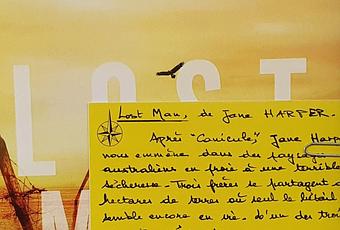 LOST
M
Lost Man, de Jane HARPER.
Après "Canicule", Jane Harp
nous emmène dans des paysages
australiens en proie à une terrible
sécheresse. Trois frères se partagent d
hectares de terres où seul le bétail
semble encore en vie. d'un des troi